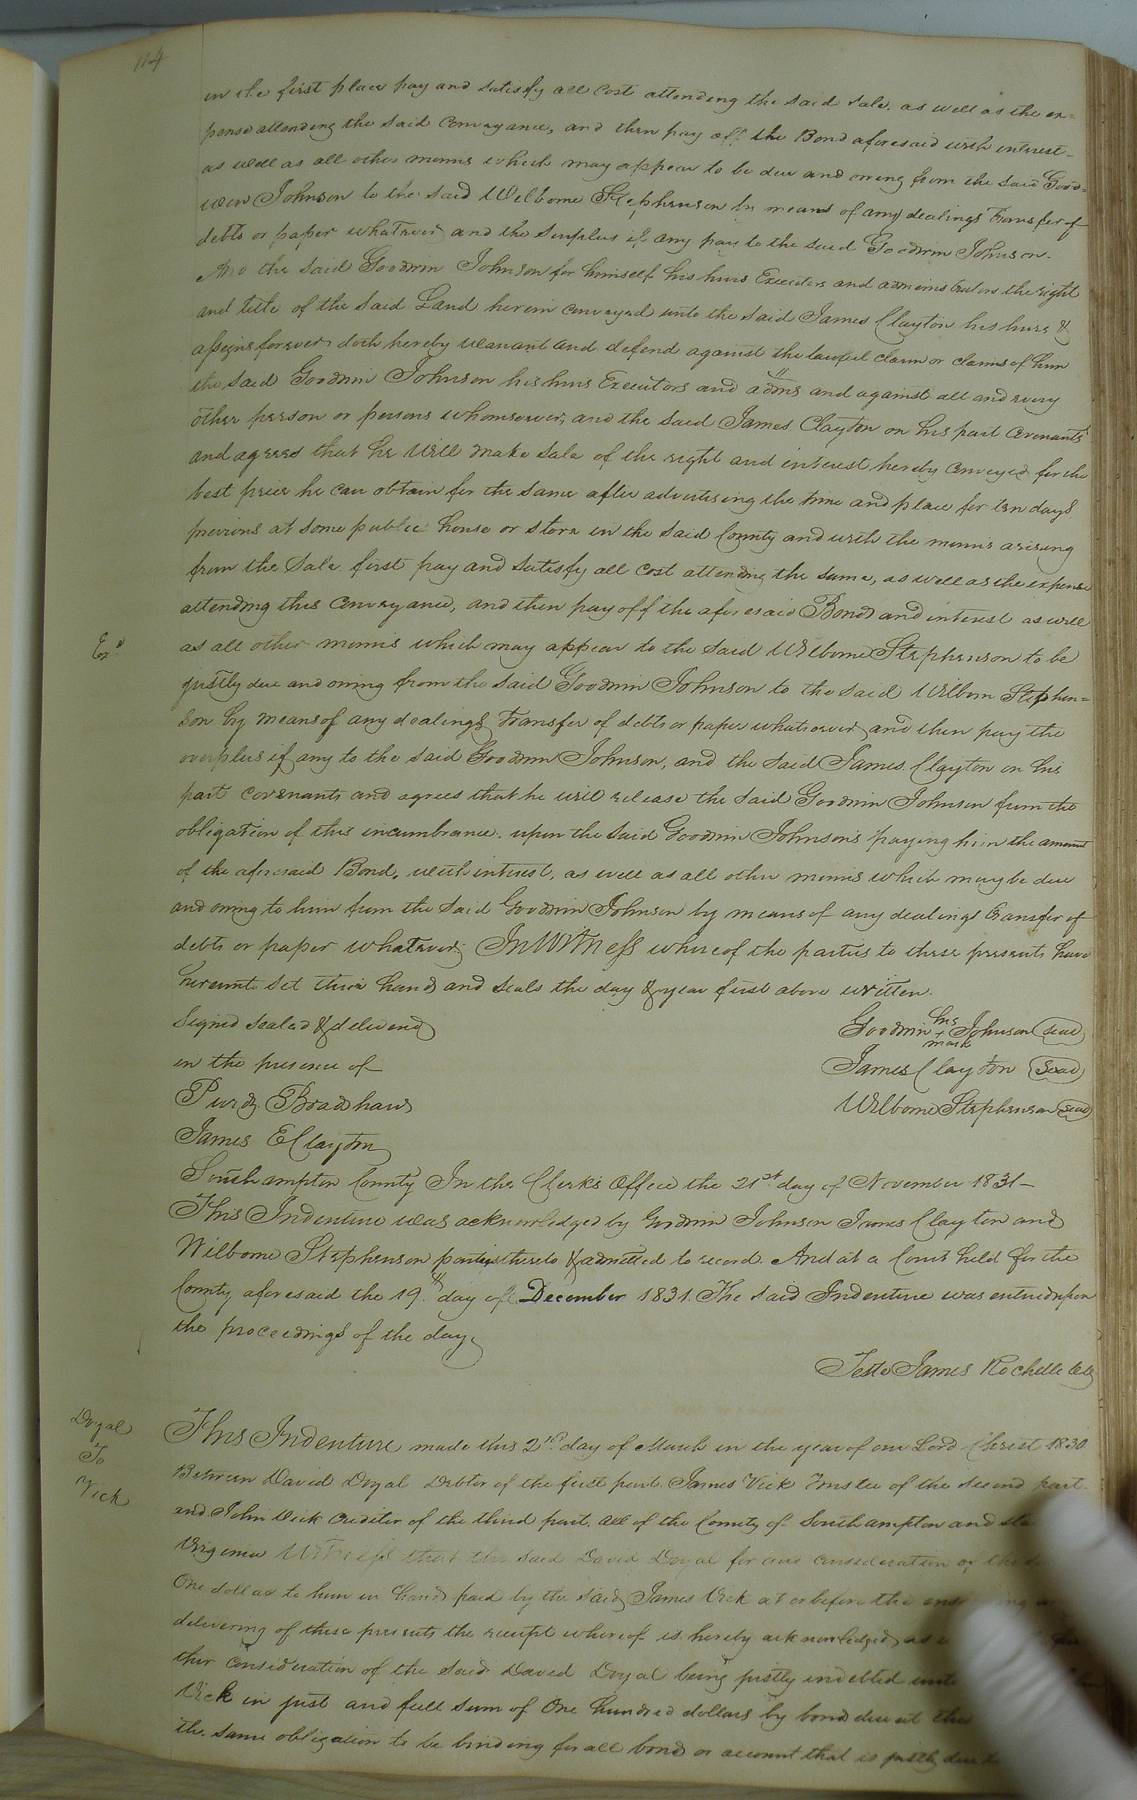 114
in the first place pay and satisfy all cost attending the said sale, as well as the ex=
pense attending the said Conveyance, and then pay off the Bond aforesaid with interest
as well as all other monies which may appear to be due and owing from the said Good=
win Johnson to the said Wilborne Stephenson by means of any dealings Transfer of
debts or paper whatever and the surplus if any pay to the said Goodwin Johnson.
And the said Goodwin Johnson for himself his heirs Executors and administrators the right
and title of the said Land herein conveyed unto the said James Clayton his heirs &
assigns forever doth hereby warrant and defend against the lawful claim or claims of him
the said Goodwin Johnson his heirs Executors and adms and against all and every
other person or persons whomsoever, and the said James Clayton on his part Covenants
and agrees that he Will make sale of the right and interest hereby conveyed for the
best price he can obtain for the same after advertising the time and place for ten days
previous at some public house or store in the said County and with the monies arising
from the Sale first pay and satisfy all cost attending the same, as well as the expense
attending this Conveyance, and then pay off the aforesaid Bond and interest as well
Exd
as all other monies which may appear to the said Wilborne Stephenson to be
justly due and owing from the said Goodwin Johnson to the said Wilborn Stephen=
son by means of any dealings transfer of debts or paper whatsoever and then pay the
overplus if any to the said Goodwin Johnson, and the said James Clayton on his
part covenants and agrees that he will release the said Goodwin Johnson from the
obligation of this incumbrance upon the said Goodwin Johnson's paying him the amount
of the aforesaid Bond, with interest, as well as all other monies which may be due
and owing to him from the said Goodwin Johnson by means of any dealings transfer of
debts or paper whatever; In Witness whereof the parties to these presents have
hereunto set their hand and seals the day & year first above written.
Signed sealed & delivered
Goodwin his + mark Johnson (seal)
in the presence of
James Clayton (Seal)
Purdy Bradshaw
Wilborne Stephenson (seal)
James E Clayton
Southampton County In the Clerk's Office the 21st day of November 1831
This Indenture was acknowledged by Goodwin Johnson James Clayton and
Wilborne Stephenson parties thereto & admitted to record. And at a Court held for the
County aforesaid the 19th day of December 1831. The said Indenture was entered upon
the proceedings of the day.
Teste James Rochelle Clk
Doyal
To
Vick
This Indenture made this 2nd day of March in the year of our Lord Christ 1830
Between David Doyal Debtor of the first part James Vick Trustee of the second part
and John Vick Creditor of the third part, all of the County of Southampton and
Virginia Witnesseth that the said David Doyal for and consideration of the
One dollar to him in hand paid by the said James Vick at or before the
delivering of these presents the receipt whereof is hereby acknowledged, as
ther consideration of the said David Doyal being justly indebted unto
Vick in just and full sum of One hundred dollars by bond due at the
the same obligation to be binding for all bond or account that is justly due